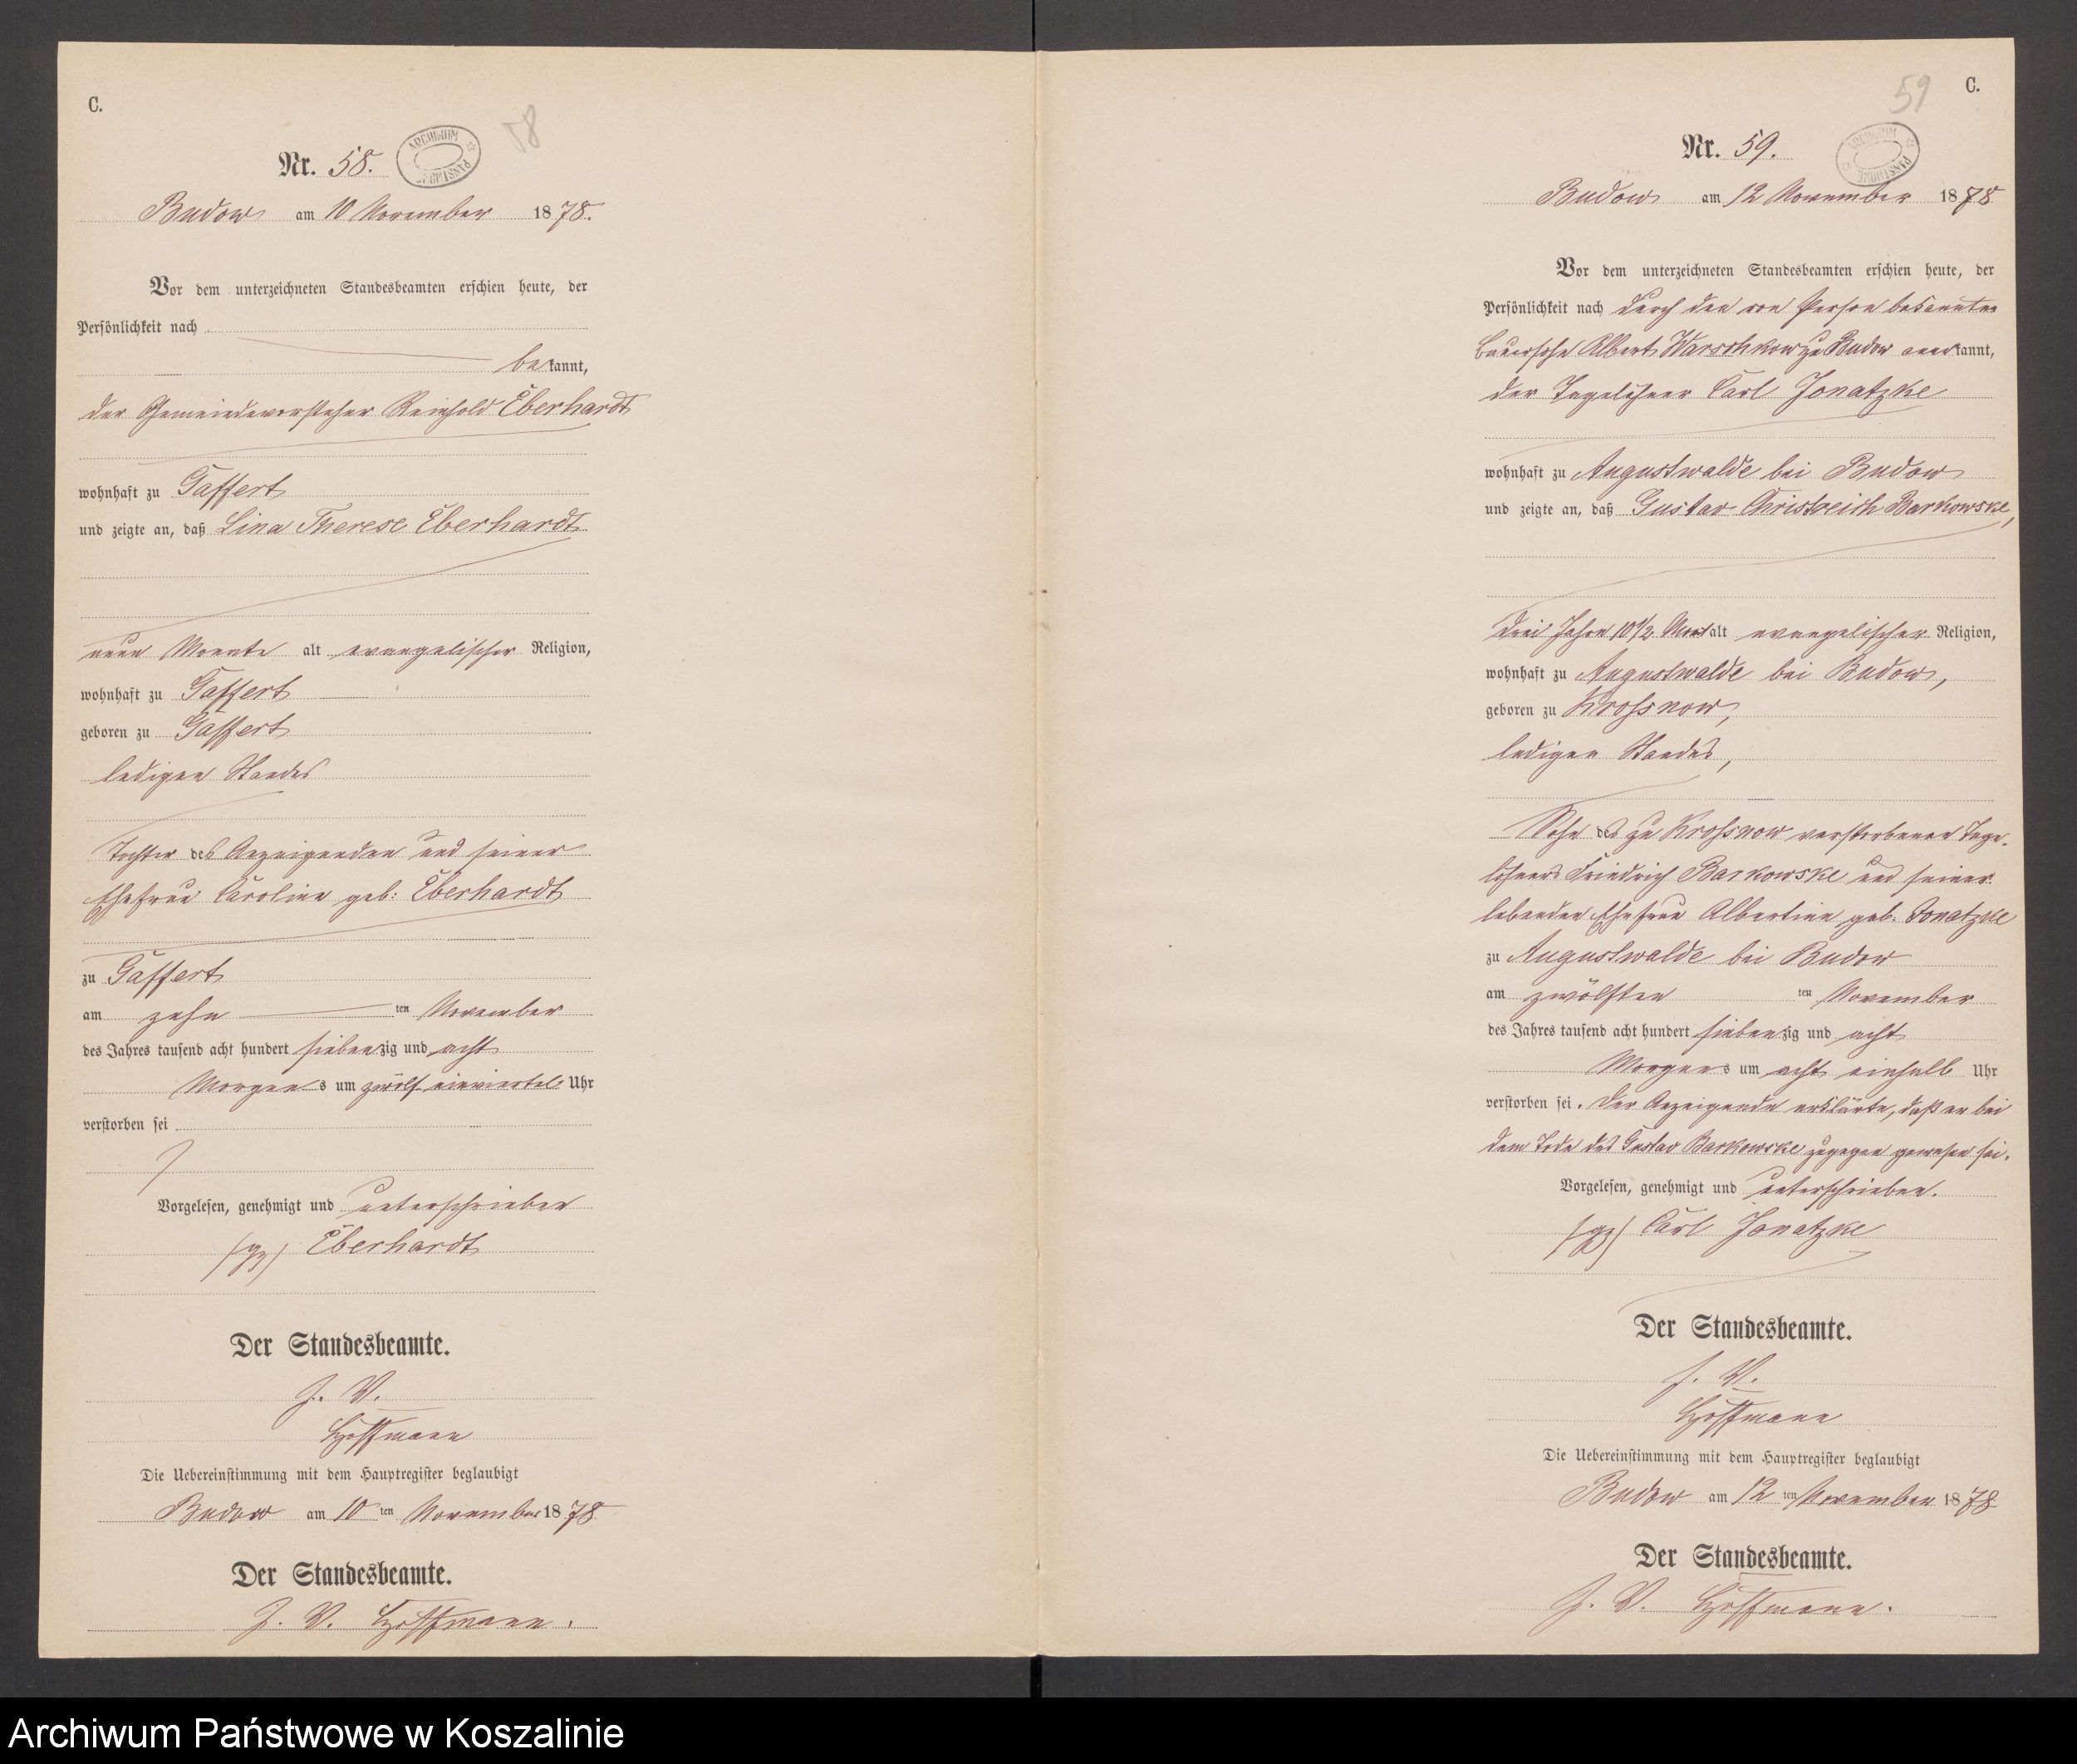 C.
58
Nr. 58.
ARCHIWUM PAŃSTWOWE
Budow am 10 November 1878.
Vor dem unterzeichneten Standesbeamten erschien heute, der
Persönlichkeit nach
bekannt,
der Gemeindevorsteher Reinhold Eberhardt
wohnhaft zu Gaffert
und zeigte an, daß Lina Therese Eberhardt
neun Monate alt evangelischer Religion,
wohnhaft zu Gaffert
geboren zu Gaffert
ledigen Standes
Tochter des Anzeigenden und seiner
Ehefrau Caroline geb: Eberhardt
zu Gaffert
am zehn ten November
des Jahres tausend acht hundert siebenzig und acht
Morgens um zwölf einviertel Uhr
verstorben sei
Vorgelesen, genehmigt und unterschrieben
(gz) Eberhardt
Der Standesbeamte.
J. V.
Hoffmann
Die Uebereinstimmung mit dem Hauptregister beglaubigt
Budow am 10 ten November 1878
Der Standesbeamte.
J. V. Hoffmann.
59
C.
Nr. 59.
ARCHIWUM PAŃSTWOWE
Budow am 12 November 1878
Vor dem unterzeichneten Standesbeamten erschien heute, der
Persönlichkeit nach durch den von Person bekannten
Bauersohn Albert Warschkow zu Budow anerkannt,
der Tagelöhner Carl Jonatzke
wohnhaft zu Augustwalde bei Budow
und zeigte an, daß Gustav Christreich Barkowske,
drei Jahre 10 1/2 Monat alt evangelischer Religion,
wohnhaft zu Augustwalde bei Budow,
geboren zu Krossnow,
ledigen Standes,
Sohn des zu Krossnow verstorbenen Tage-
löhners Friedrich Barkowske und seiner
lebenden Ehefrau Albertine geb. Jonatzke
zu Augustwalde bei Budow
am zwölften ten November
des Jahres tausend acht hundert siebenzig und acht
Morgens um acht einhalb Uhr
verstorben sei. Der Anzeigende erklärte, daß er bei
dem Tode des Gustav Barkowske zugegen gewesen sei.
Vorgelesen, genehmigt und unterschrieben.
(gz) Carl Jonatzke
Der Standesbeamte.
J. V.
Hoffmann
Die Uebereinstimmung mit dem Hauptregister beglaubigt
Budow am 12 ten November 1878
Der Standesbeamte.
J. V. Hoffmann.
Archiwum Państwowe w Koszalinie